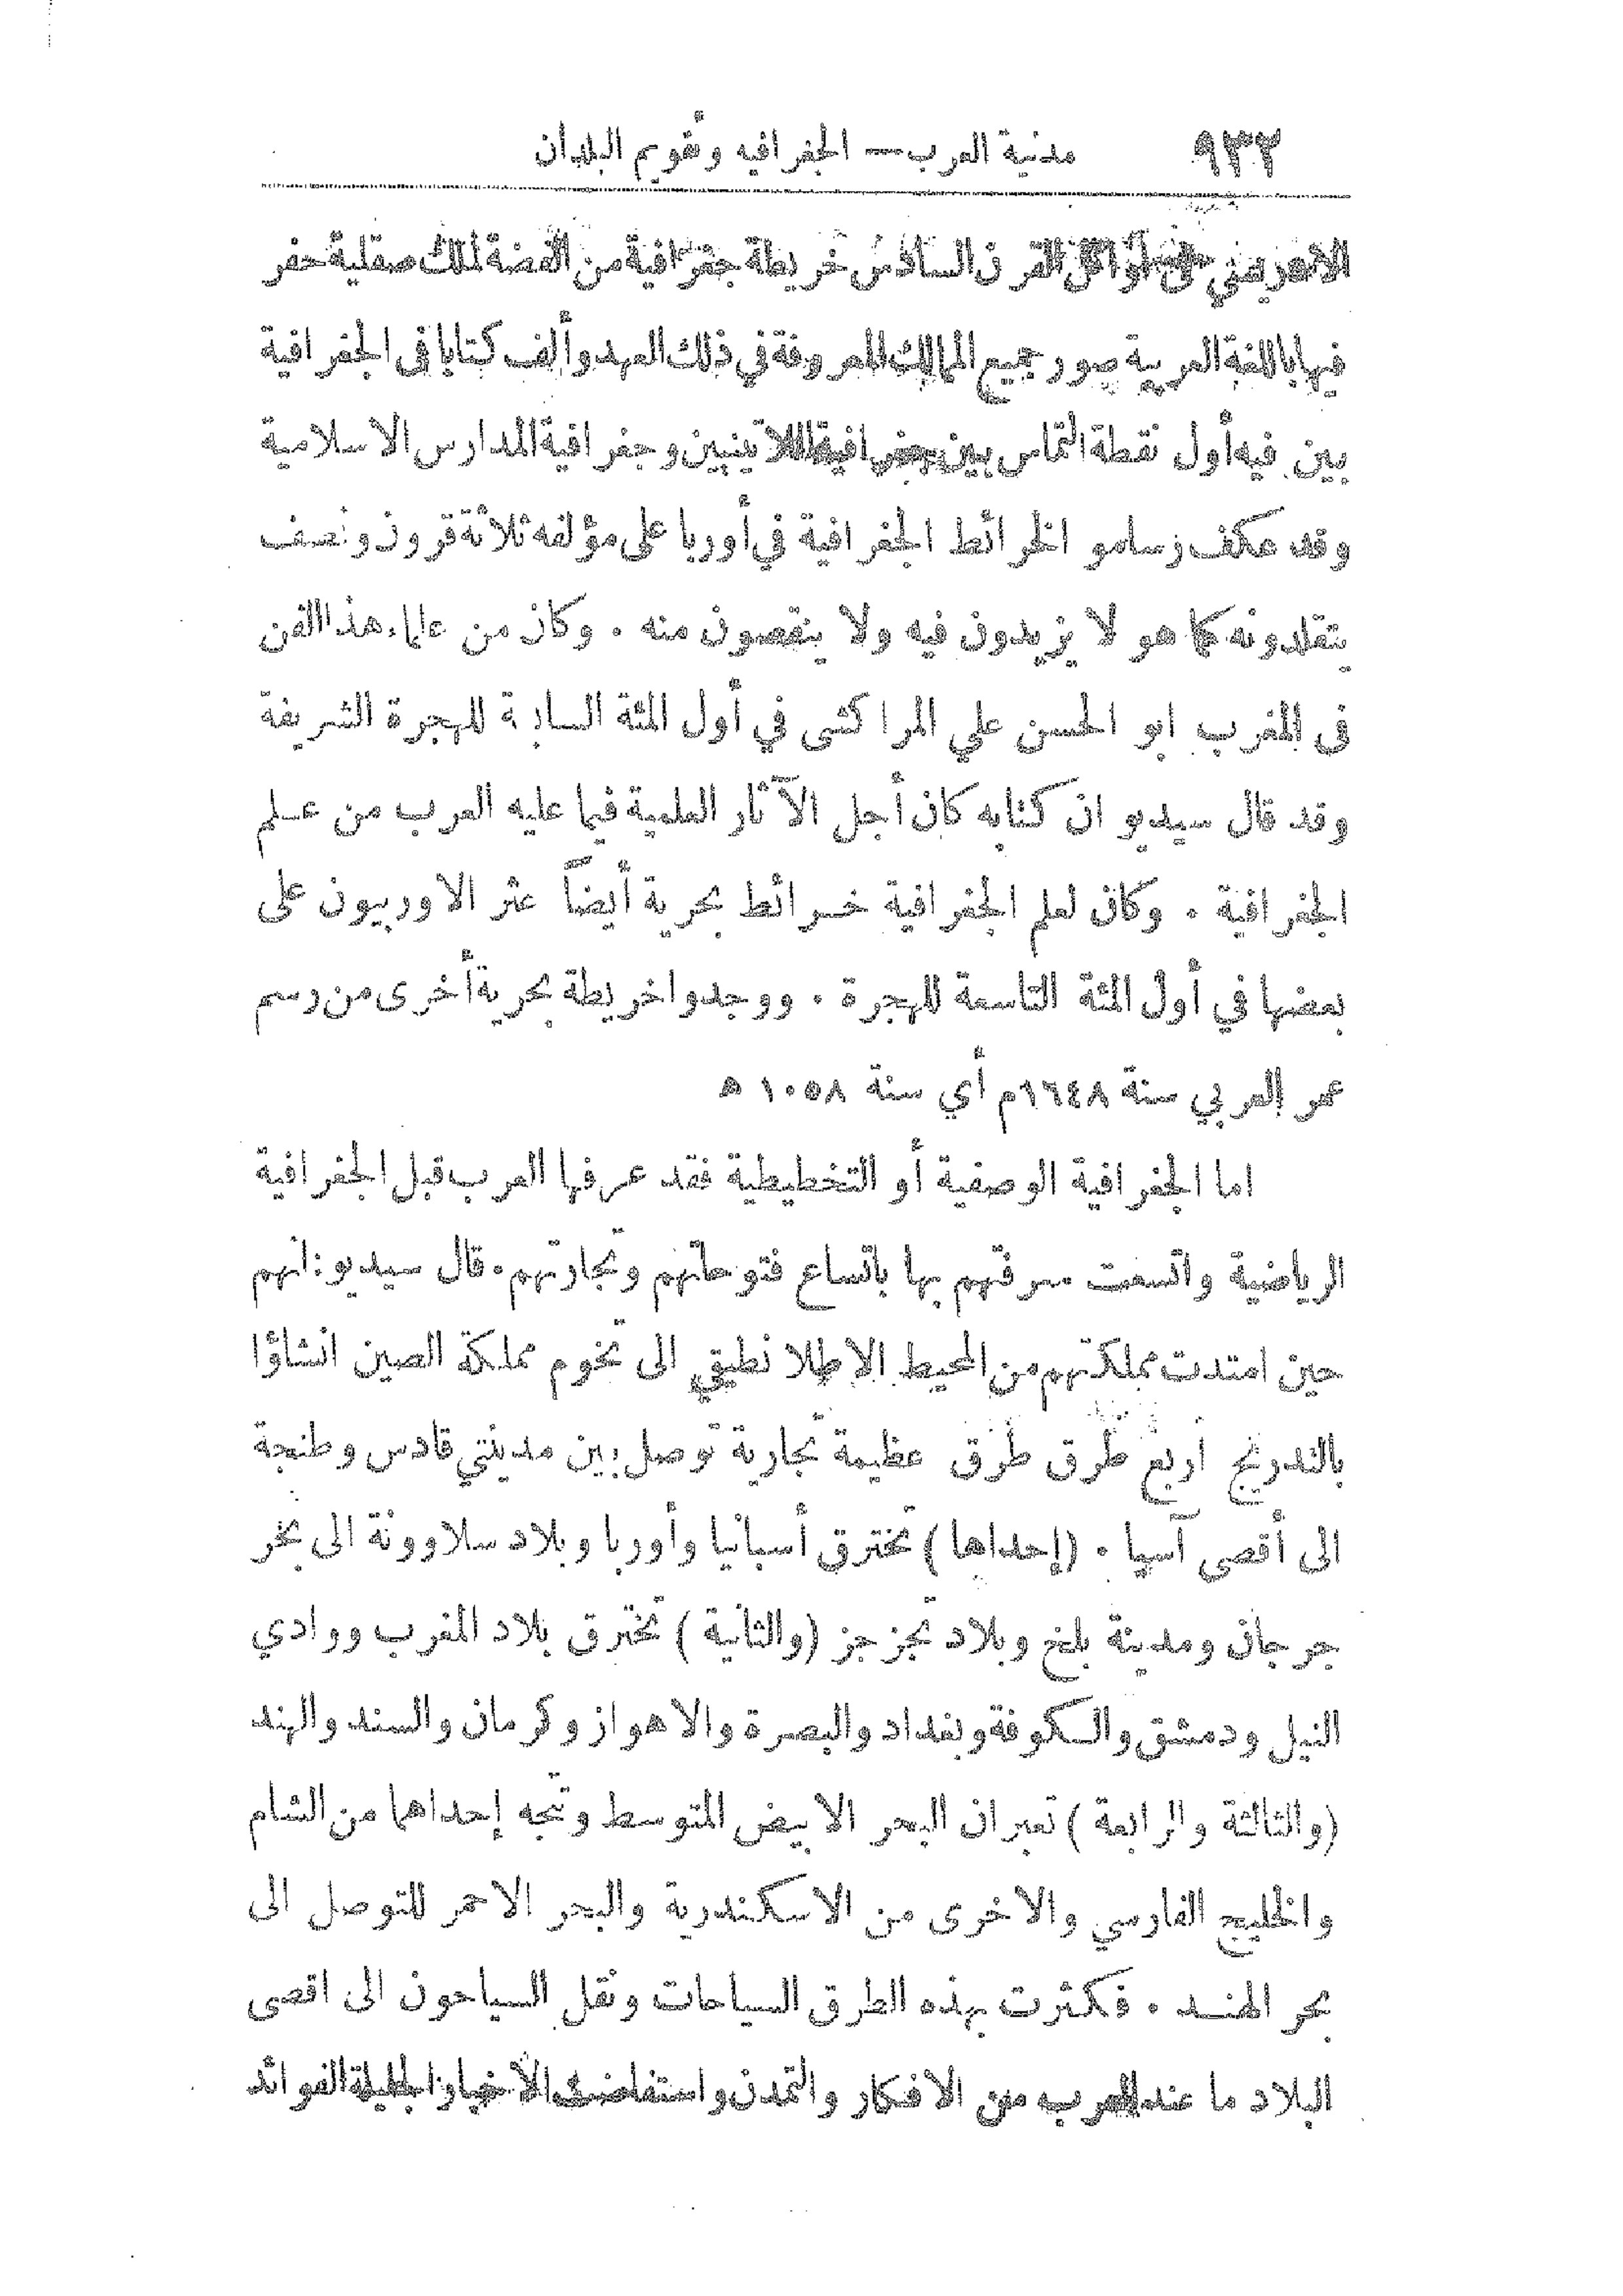 ٩٣٢ مدنية العرب — الجغرافيه وتقويم البلدان
الادريسي في أوائل القرن السادس خريطة جغرافية من الفضة لملك صقلية حفر
فيها باللغة العربية صور جميع الممالك المعروفة في ذلك العهد وألف كتابا فى الجغرافية
بين فيه أول نقطة التماس بين جغرافية اللاتينيين وجغرافية المدارس الاسلامية
وقد عكف رسامو الخرائط الجغرافية في أوربا على مؤلفه ثلاثة قرون ونصف
يتقلدونه كما هو لا يزيدون فيه ولا ينقصون منه . وكان من علماء هذا الفن
فى المغرب ابو الحسن علي المراكشى في أول المئة السابعة للهجرة الشريفة
وقد قال سيديو ان كتابه كان أجل الآثار العلمية فيما عليه العرب من علم
الجغرافية . وكان لعلم الجغرافية خرائط بحرية أيضاً عثر الاوربيون على
بعضها في أول المئة التاسعة للهجرة . ووجدوا خريطة بحرية أخرى من رسم
عمر العربي سنة ١٦٤٨م أي سنة ١٠٥٨ ه
اما الجغرافية الوصفية أو التخطيطية فقد عرفها العرب قبل الجغرافية
الرياضية واتسعت معرفتهم بها باتساع فتوحاتهم وتجارتهم . قال سيديو : انهم
حين امتدت مملكتهم من المحيط الاطلانطيقي الى تخوم مملكة الصين انشاؤا
بالتدريج اربع طرق طرق عظيمة تجارية توصل بين مدينتي قادس وطنجة
الى أقصى آسيا . (إحداها) تخترق أسبانيا وأوربا وبلاد سلاوونة الى بحر
جرجان ومدينة بلخ وبلاد تجزجز (والثانية) تخترق بلاد المغرب ووادي
النيل ودمشق والكوفة وبغداد والبصرة والاهواز وكرمان والسند والهند
(والثالثة والرابعة) تعبران البحر الابيض المتوسط وتتجه إحداهما من الشام
والخليج الفارسي والاخرى من الاسكندرية والبحر الاحمر للتوصل الى
بحر الهند . فكثرت بهذه الطرق السياحات ونقل السياحون الى اقصى
البلاد ما عند العرب من الافكار والتمدن واستفاضت الاخبار الجليلة الفوائد